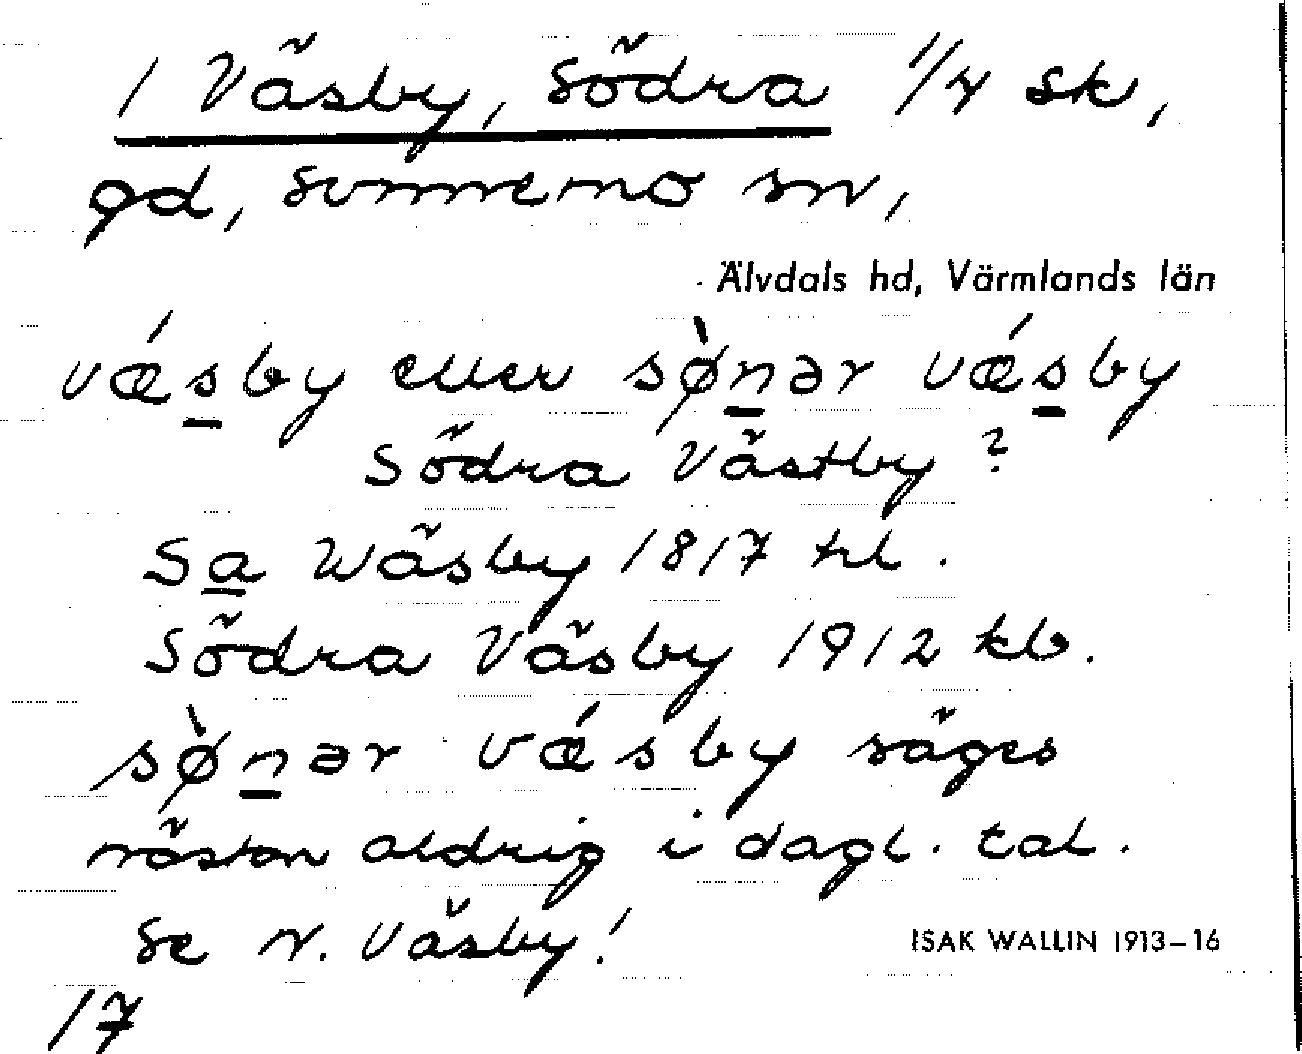 1 Väsby, Södra 1/4 sk,
gd, Sunnemo sn,
Älvdals hd, Värmlands län
vǽsby eller sø̀nər vǽsby
Södra Västby?
Sa Wäsby 1817 hl.
Södra Väsby 1912 kb.
sø̀nər vǽsby säges
nästan aldrig i dagl. tal.
Se N. Väsby!
ISAK WALLIN 1913–16
17